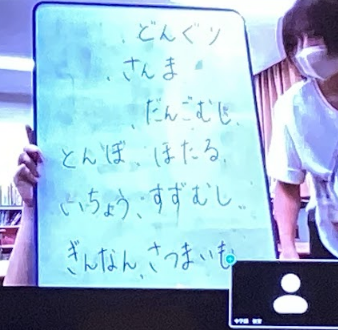 、どんぐり
、さんま
、だんごむし、
とんぼ、ほたる、
いちょう、すずむし、
ぎんなん、さつまいも